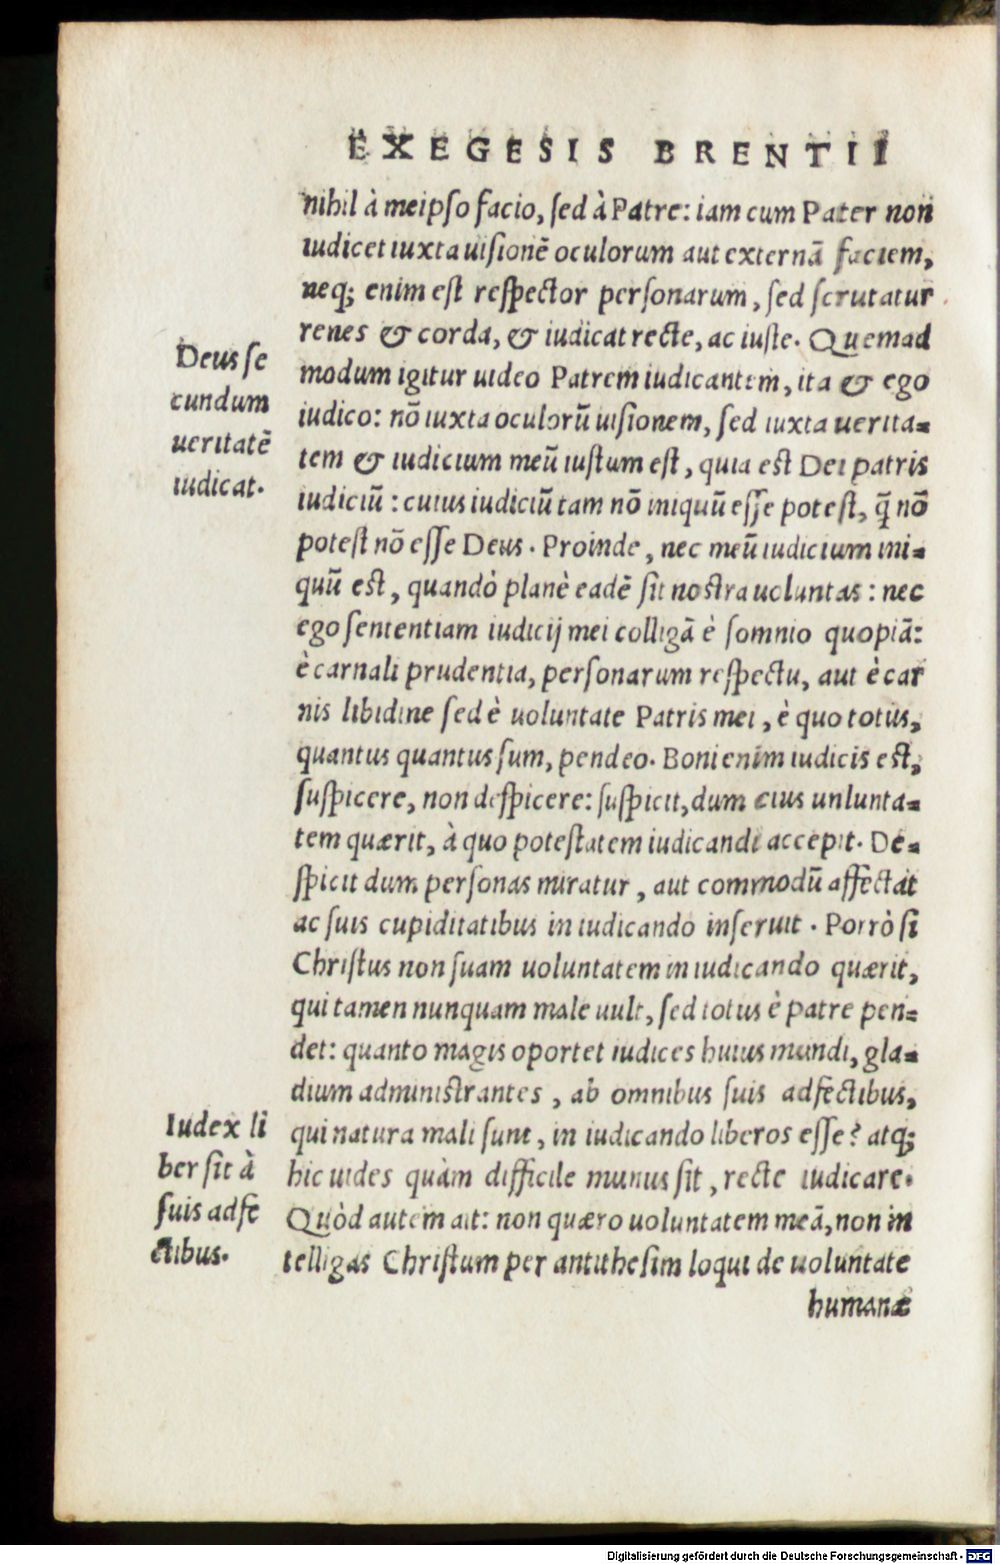 EXEGESIS BRENTII
nihil à meipso facio, sed à Patre: iam cum Pater non
iudicet iuxta uisionē oculorum aut externā faciem,
neq; enim est respector personarum, sed scrutatur
renes & corda, & iudicat recte, ac iuste. Quemad
modum igitur uideo Patrem iudicantem, ita & ego
iudico: nō iuxta oculorū uisionem, sed iuxta uerita-
tem & iudicium meū iustum est, quia est Dei patris
iudiciū: cuius iudiciū tam nō iniquū esse potest, q̄ nō
potest nō esse Deus. Proinde, nec meū iudicium ini-
quū est, quandò planè eadē sit nostra uoluntas: nec
ego sententiam iudicij mei colligā è somnio quopiā:
è carnali prudentia, personarum respectu, aut è car
nis libidine sed è uoluntate Patris mei, è quo totus,
quantus quantus sum, pendeo. Boni enim iudicis est,
suspicere, non despicere: suspicit, dum eius unlunta-
tem quærit, à quo potestatem iudicandi accepit. De-
spicit dum personas miratur, aut commodū affectat
ac suis cupiditatibus in iudicando inseruit. Porrò si
Christus non suam uoluntatem in iudicando quærit,
qui tamen nunquam male uult, sed totus è patre pen-
det: quanto magis oportet iudices huius mundi, gla-
dium administrantes, ab omnibus suis adfectibus,
qui natura mali sunt, in iudicando liberos esse? atq;
hic uides quàm difficile munus sit, recte iudicare.
Quòd autem ait: non quæro uoluntatem meā, non in
telligas Christum per antithesim loqui de uoluntate
humanæ
Deus se
cundum
ueritatē
iudicat.
Iudex li
ber sit à
suis adfe
ctibus.
Digitalisierung gefördert durch die Deutsche Forschungsgemeinschaft - DFG